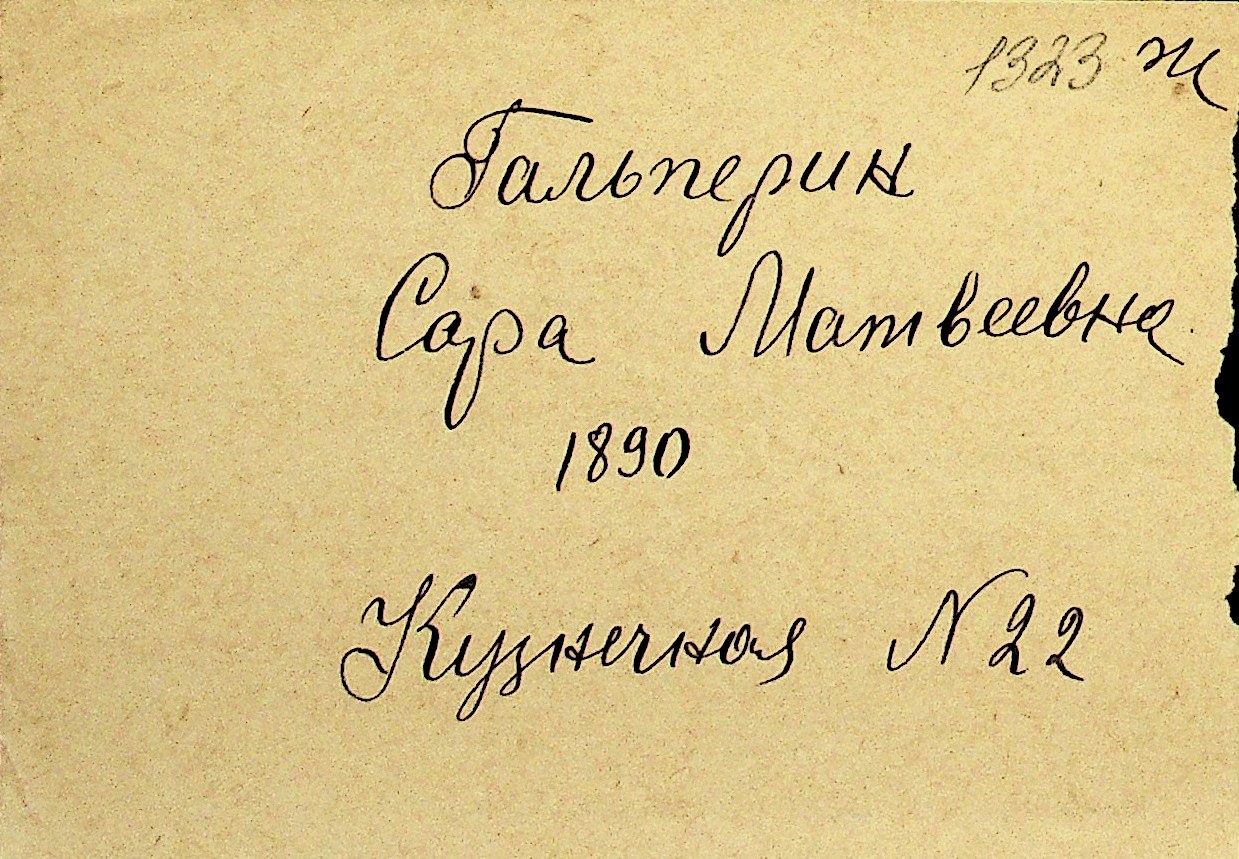 1323 ж
Гальперин
Сара Матвеевна
1890
Кузнечная N 22